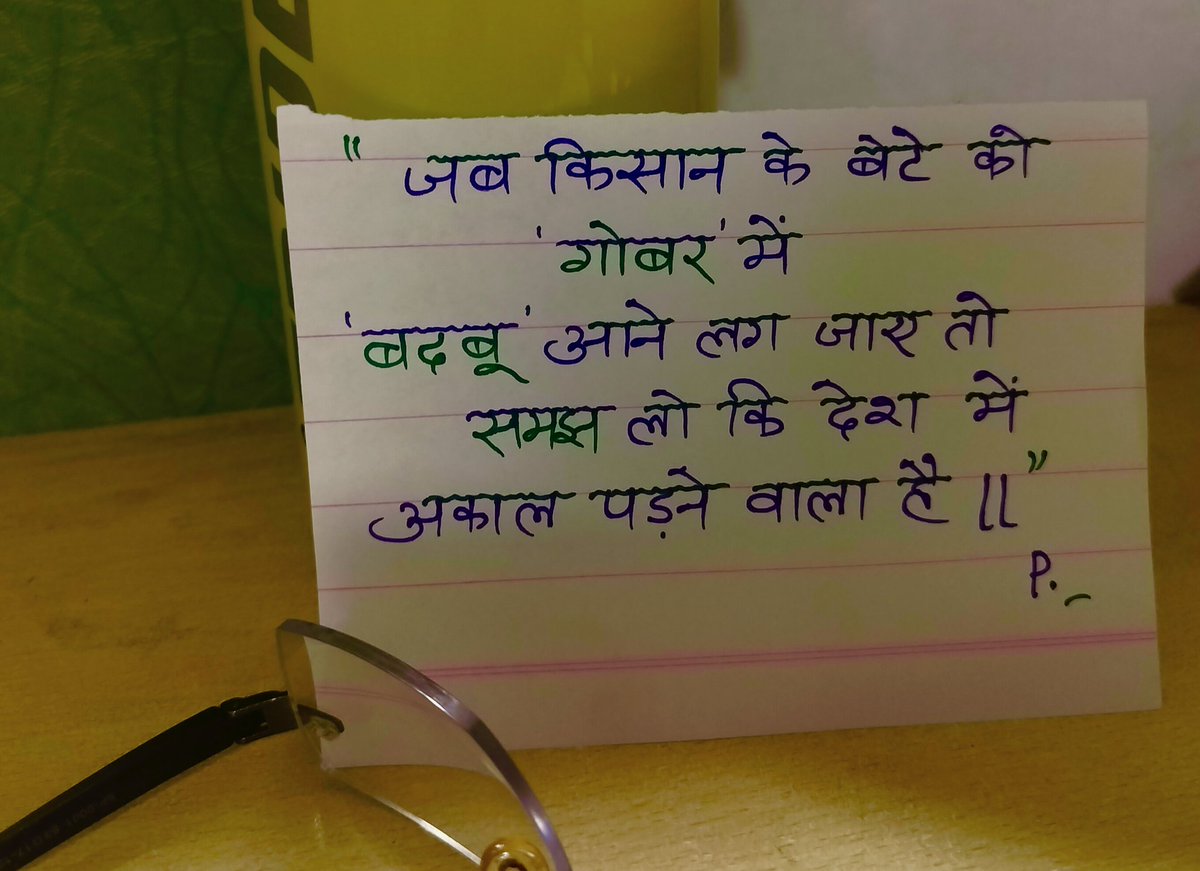 " जब किसान के बेटे को
'गोबर' में
'बदबू' आने लग जाए तो
समझ लो कि देश में
अकाल पड़ने वाला है ॥"
P._